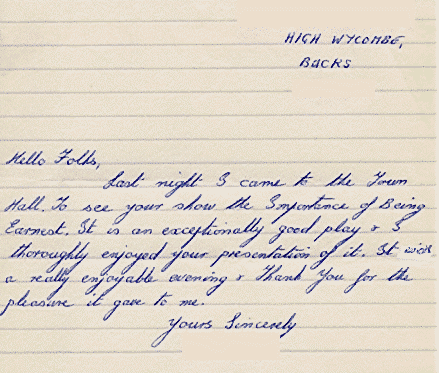 HIGH WYCOMBE,
BUCKS
Hello Folks,
Last night I came to the Town
Hall. To see your show the Importance of Being
Earnest. It is an exceptionally good play & I
thoroughly enjoyed your presentation of it. It was
a really enjoyable evening & Thank You for the
pleasure it gave to me.
Yours Sincerely